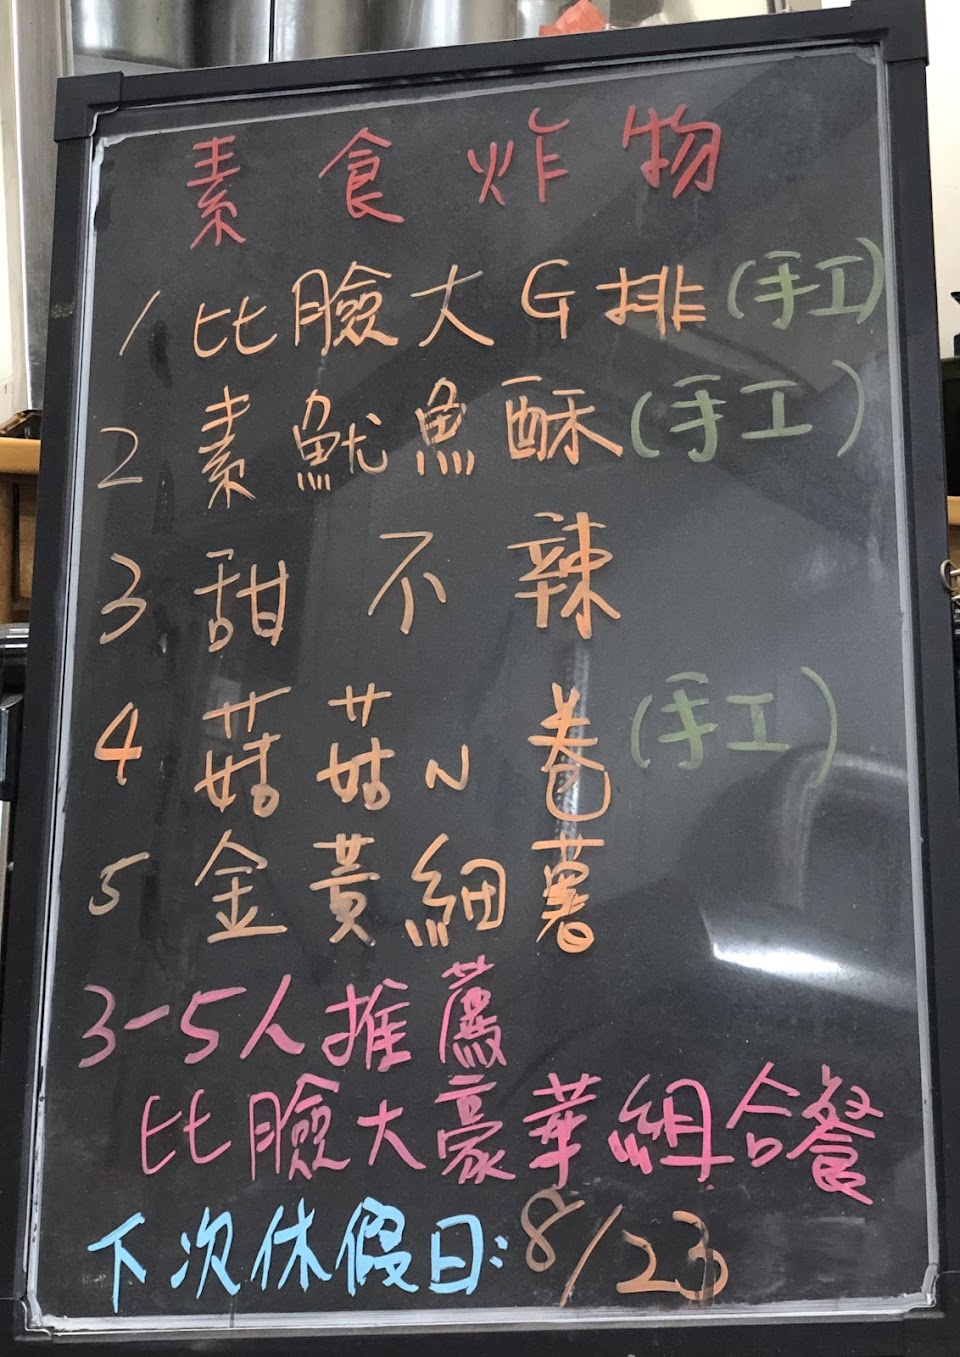 素食炸物
1 比臉大G排(手工)
2 素魷魚酥(手工)
3 甜不辣
4 菇菇ㄟ卷(手工)
5 金黃細薯
3-5人推薦
比臉大豪華組合餐
下次休假日:8/23